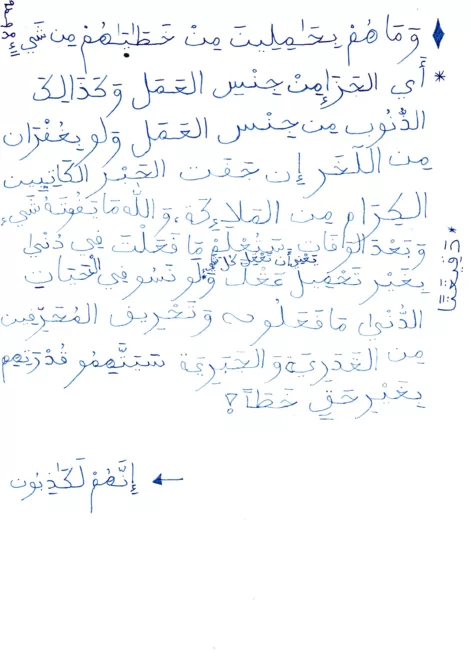 وَمَا هُمْ بِحَامِلِيتَ مِنْ خَطَايَاهُمْ مِن شَيْءٍ
* أَي الجَزَاءِ مِنْ جِنْسِ العَمَل وَكَذَالِكَ
الذُّنُوب مِن جِنْس العَمَل وَلَو يغُفْرَان
مِن اللَّغَر إِن جَفَت الحِبْر الكَاتِبِين
الكِرَام مِن المَلاَءِكَة، وَاللَّه مَا يَفُوتَهُ شَيْء
وَبَعْدَ الوَفَاتِ سَيُعْلَمُ مَا فَعَلْتَ فِي دُنْيَ
بِغَيْر تَعْمِيل عَقْلكَ وَلَو نَسُو فِي الحَيَاتِ
الدُّنْيَ مَا فَعَلُوه وَتَحْرِيف المُحَرِّفِين
مِن القَدَرِيَة وَالجَبَرِيَة سَبَبَّهُمُو قُدْرَتِهِم
بِغَيْرِ حَقٍ خَطَأً؟
← إِنَّهُمْ لَكَاذِبُون